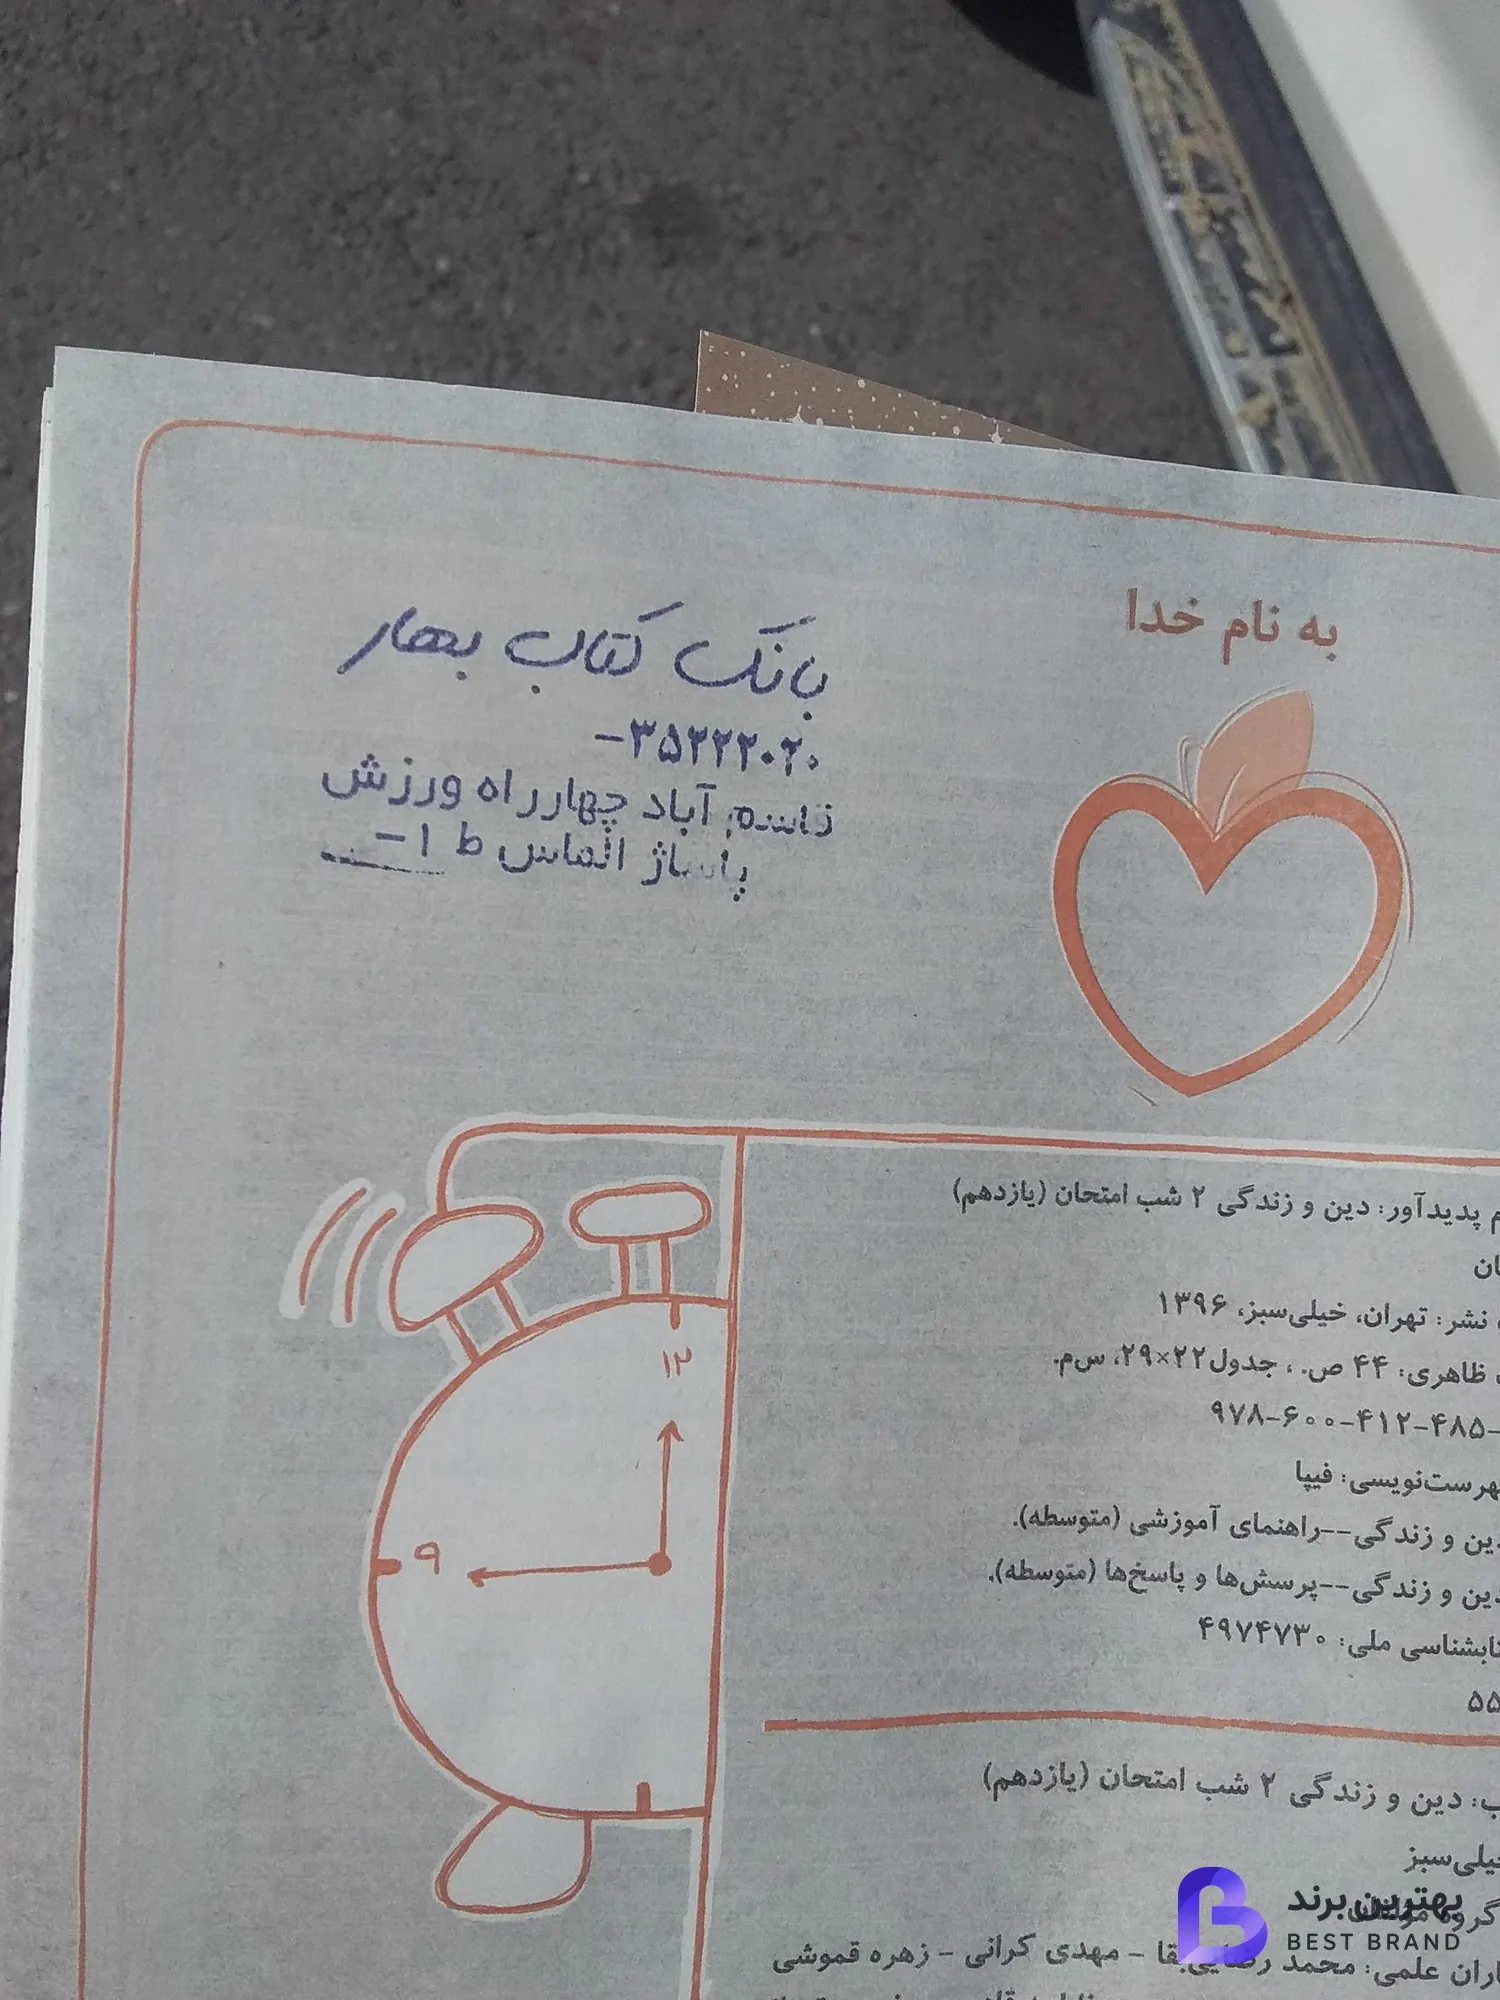 به نام خدا
بانک کتاب بهار
۳۵۲۲۲۰۲۰-
قاسم آباد چهارراه ورزش
پاساژ الماس ط ۱-
پدیدآور: دین و زندگی ۲ شب امتحان (یازدهم)
نشر: تهران، خیلی‌سبز، ۱۳۹۶
ظاهری: ۴۴ ص. ، جدول ۲۲×۲۹، س‌م.
۹۷۸-۶۰۰-۴۱۲-۴۸۵-
فهرست‌نویسی: فیپا
دین و زندگی--راهنمای آموزشی (متوسطه).
دین و زندگی--پرسش‌ها و پاسخ‌ها (متوسطه).
ملی: ۴۹۷۴۷۳۰
۵۵
۱۲
۹
دین و زندگی ۲ شب امتحان (یازدهم)
خیلی‌سبز
گروه
علمی: محمد رضایی‌بقا - مهدی کرانی - زهره قموشی
بهترین برند
BEST BRAND